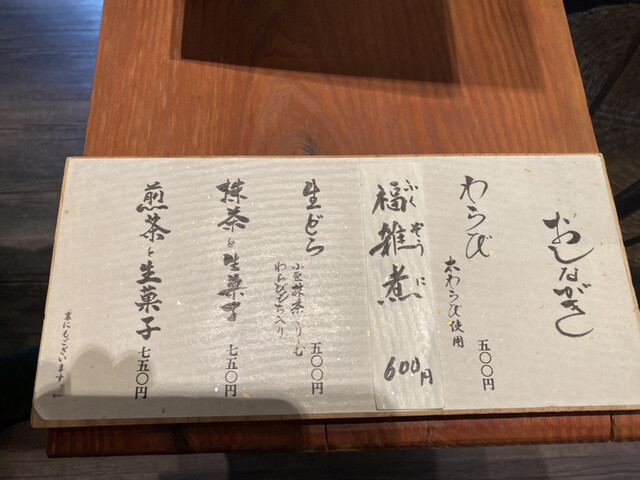 おしながき
わらび
本わらび使用
五〇〇円
ふくぞうに
福雑煮
600円
生どら
小豆抹茶くりーむ
わらびもち入り
五〇〇円
抹茶と生菓子
七五〇円
煎茶と生菓子
七五〇円
裏にもございます